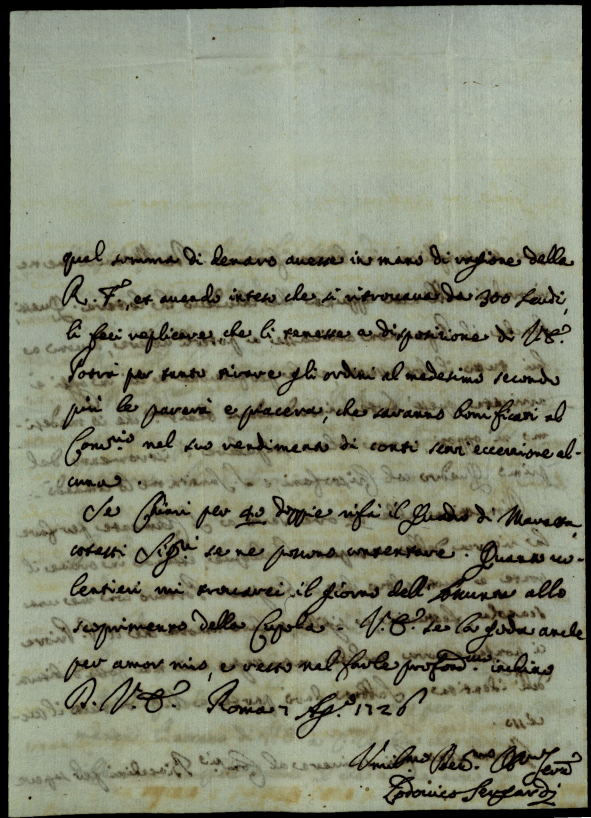 qual somma di denaro avesse in mano di ragione della
R. F.ª, et avendo inteso che si ritrovava da 300 scudi,
li feci replicare, che li tenesse a disposizione di V.S.
Potrà per tanto tirare gli ordini al medesimo secondo
più le parerà e piacerà, che saranno bonificati al
Com.rio nel suo rendimento di conti senz' eccezione al-
cuna.
Se Chiari per 40 doppie rifà il Quadro di Maratta,
cotesti Sig.ri se ne possono contentare. Quanto vo-
lentieri mi troverei il giorno dell' Assunta allo
scoprimento della Cupola. V.S. se la goda anche
per amor mio, e resto nel farle profond.ma inchino
D. V. S. Roma 7 Ag.o 1726
Umilmo Dev.mo Obl. Serv.
Lodovico Sergardi